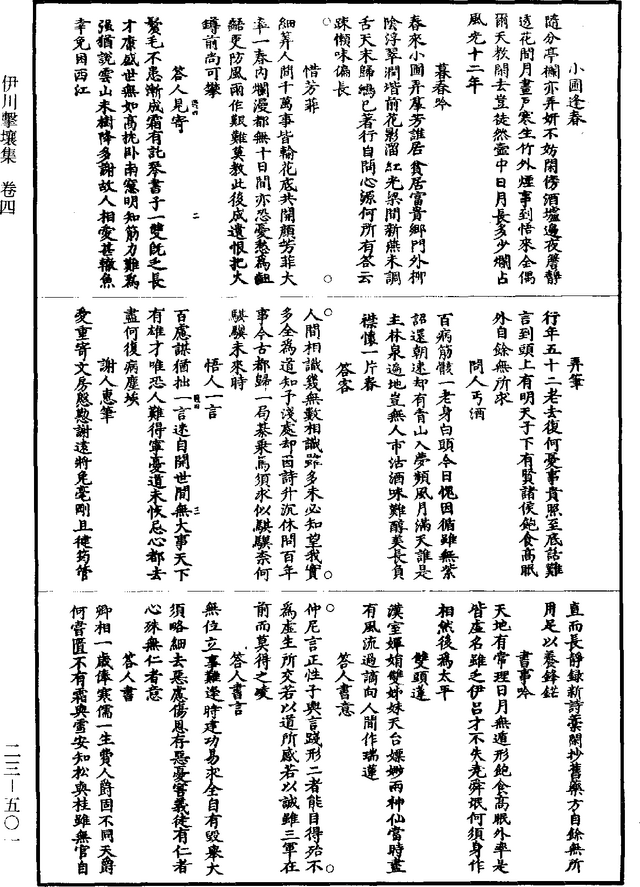 伊川擊壤集　卷四
二三—五〇一
小圃逢春
隨分亭欄亦弄妍不妨閑傍酒壚邊夜簷靜
透花間月晝戶寒生竹外煙事到悟來全偶
爾天教閑去豈徒然壺中日月長多少爛占
風光十二年
暮春吟
春來小圃弄羣芳誰居貧居富貴鄉門外柳
陰浮翠潤堦前花影溜紅光梁間新燕未調
舌天末歸鴻已著行自問心源何所有答云
踈懶味偏長
惜芳菲
細筭人間千萬事皆輸花底共開顏芳菲大
率一春內爛漫都無十日間亦恐憂愁為齟
齬更防風雨作艱難莫教此後成遺恨把火
罇前尚可攀
答人見寄
鬢毛不患漸成霜有託琴書子一雙旣乏長
才康盛世無如高枕卧南窻明知筋力難為
強猶說雲山未樹降多謝故人相愛甚轍魚
幸免困西江
二
弄筆
行年五十二老去復何憂事貴照至底話難
言到頭上有明天子下有賢諸侯飽食高眠
外自餘無所求
問人丐酒
百病筋骸一老身白頭今日愧因循雖無紫
詔還朝速却有青山入夢頻風月滿天誰是
主林泉遍地豈無人市沽酒味難醇美長負
襟懷一片春
答客
人間相識幾無數相識雖多未必知望我實
多全為道知予淺處却因詩升沉休問百年
事今古都歸一局碁乗馬須求似騏驥柰何
騏驥未來時
悟人一言
百慮謀猶拙一言迷自開世間無大事天下
有雄才唯恐人難得寧憂道未恢忌心都去
盡何復病塵埃
三
謝人惠筆
愛重寄文房慇懃謝遠將兔毫剛且健筠管
直而長靜錄新詩藁閑抄舊藥方自餘無所
用足以養鋒鋩
書事吟
天地有常理日月無遁形飽食高眠外率是
皆虛名雖乏伊呂才不失堯舜氓何須身作
相然後為太平
雙頭蓮
漢室嬋娟雙姊妹天台嫖緲兩神仙當時盡
有風流過謫向人間作瑞蓮
答人書意
仲尼言正性子輿言踐形二者能自得殆不
為虛生所交若以道所感若以誠雖三軍在
前而莫得之凌
答人書言
無位立事難逢時建功易求全自有毀舉大
須略細去惡慮傷恩存惡憂害義徒有仁者
心殊無仁者意
答人書
卿相一歲俸寒儒一生費人爵固不同天爵
何嘗匱不有霜與雪安知松與桂雖無官自